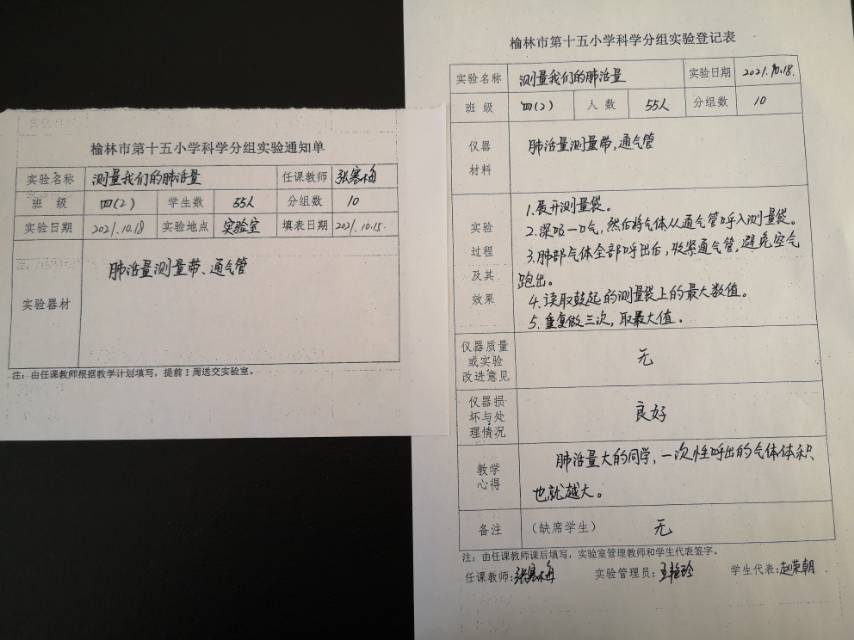 榆林市第十五小学科学分组实验通知单
实验名称 测量我们的肺活量 任课教师 张寒梅
班 级 四(2) 学生数 55人 分组数 10
实验日期 2021.10.18 实验地点 实验室 填表日期 2021.10.15.
实验器材 肺活量测量带、通气管
注：由任课教师根据教学计划填写，提前1周送交实验室。
榆林市第十五小学科学分组实验登记表
实验名称 测量我们的肺活量 实验日期 2021.10.18.
班 级 四(2) 人 数 55人 分组数 10
仪器
材料
肺活量测量带，通气管
实验
过程
及其
效果
1.展开测量袋。
2.深吸一口气，然后将气体从通气管呼入测量袋。
3.肺部气体全部呼出后，收紧通气管，避免空气
跑出。
4.读取鼓起的测量袋上的最大数值。
5.重复做三次，取最大值。
仪器质量
或实验
改进意见
无
仪器损
坏与处
理情况
良好
教学
心得
肺活量大的同学，一次性呼出的气体体积
也就越大。
备注 (缺席学生) 无
注：由任课教师课后填写，实验室管理教师和学生代表签字。
任课教师：张寒梅 实验管理员：王 学生代表：赵荣朝